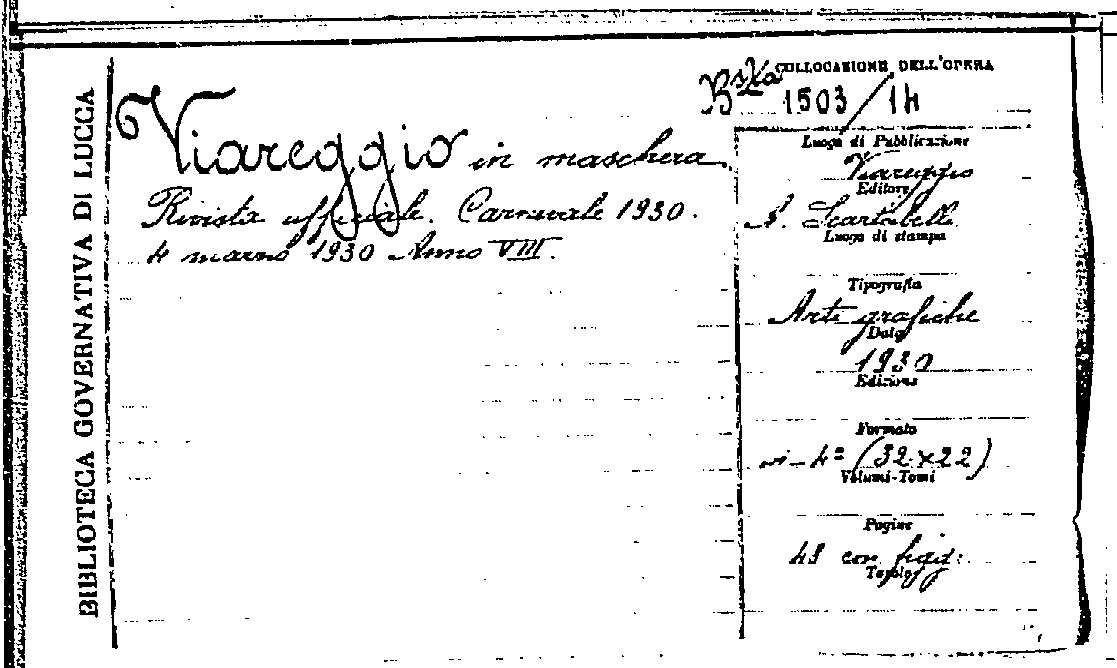 BIBLIOTECA GOVERNATIVA DI LUCCA
Viareggio in maschera.
Rivista ufficiale. Carnevale 1930.
4 marzo 1930 Anno VIII.
COLLOCAZIONE DELL'OPERA
1503/14
Luogo di Pubblicazione
Viareggio
Editore
A. Scartabelli
Luogo di stampa
Tipografia
Arti grafiche
Data
1930
Edizione
Formato
in-4º (32×22)
Volumi-Tomi
Pagine
48 con figg.
Tavole